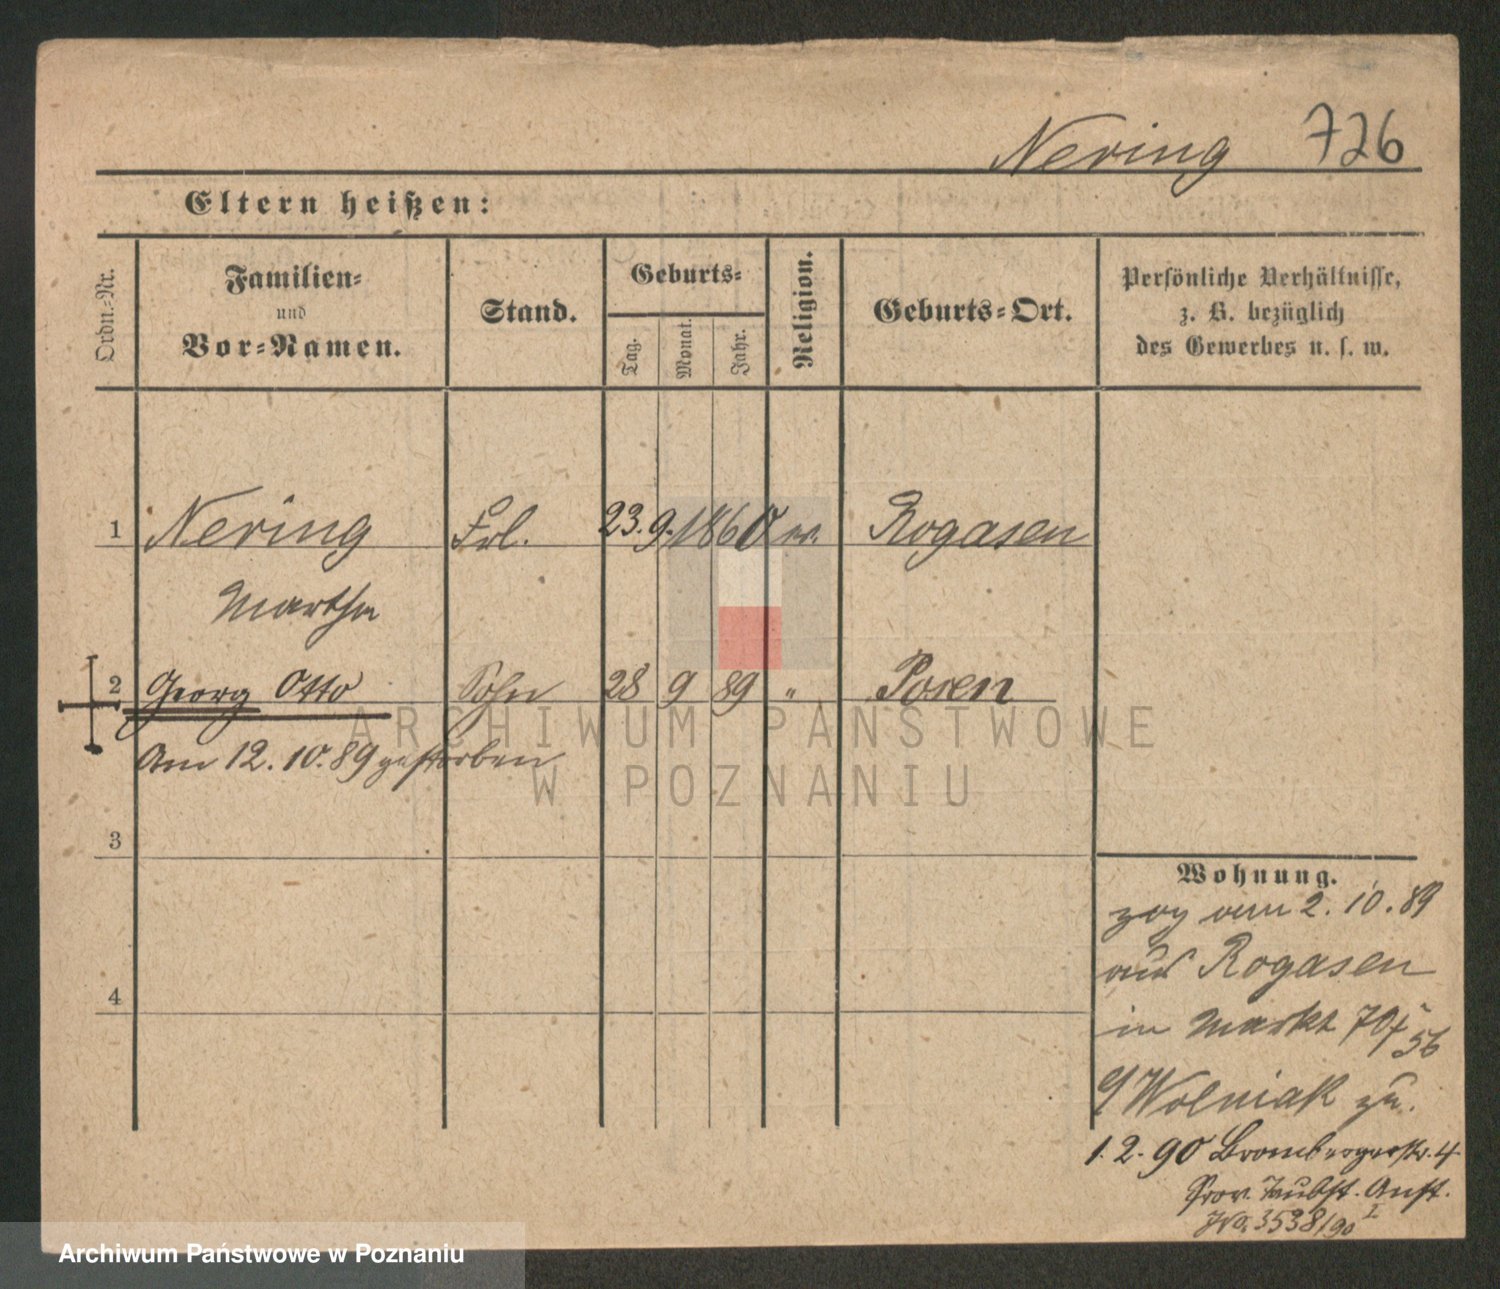 Nering 726
Eltern heißen:
Ordn.-Nr.
Familien-
und
Vor-Namen.
Stand.
Geburts-
Tag.
Monat.
Jahr.
Religion.
Geburts-Ort.
Persönliche Verhältnisse,
z. B. bezüglich
des Gewerbes u. s. w.
1 Nering Frl. 23. 9. 1860 ev. Rogasen
Martha
2 Georg Otto Sohn 28 9 89 " Posen
Am 12. 10. 89 gestorben
3
4
Wohnung.
zog am 2. 10. 89
aus Rogasen
in Markt 70
56
Wolniak zu.
1. 2. 90 Brombergerstr. 4
Prov. Taubst. Anst.
No. 3538/90 I
ARCHIWUM PAŃSTWOWE
W POZNANIU
Archiwum Państwowe w Poznaniu